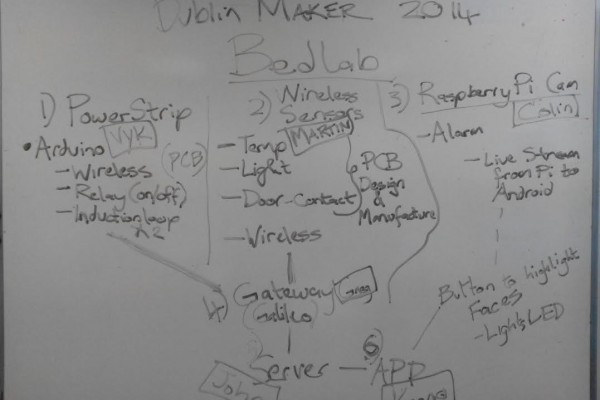 Dublin Maker 2014
Bedlab
1) PowerStrip
• Arduino VYK
- Wireless (PCB)
- Relay (on/off)
- Induction loop x2
2) Wireless
Sensors
- Temp MARTIN
- Light
- Door-Contact
- Wireless
PCB
Design
&
Manufacture
3) Raspberry Pi Cam
Colin
- Alarm
- Live Stream
from Pi to
Android
Button to highlight
Faces
- Lights LED
4) Gateway Greg
(Galileo)
Server — 6 APP
John